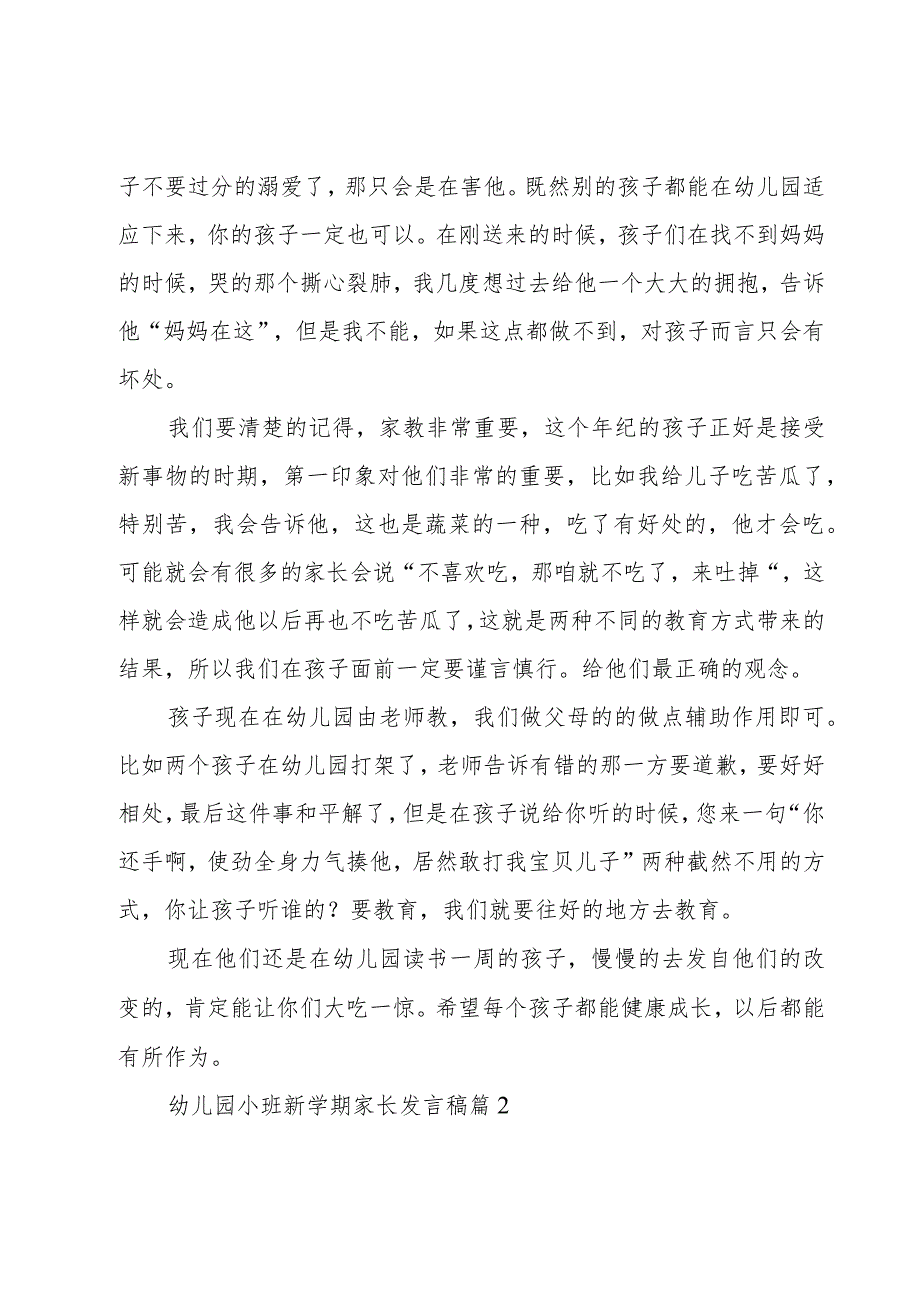 子不要过分的溺爱了，那只会是在害他。既然别的孩子都能在幼儿园适
应下来，你的孩子一定也可以。在刚送来的时候，孩子们在找不到妈妈
的时候，哭的那个撕心裂肺，我几度想过去给他一个大大的拥抱，告诉
他“妈妈在这”，但是我不能，如果这点都做不到，对孩子而言只会有
坏处。
我们要清楚的记得，家教非常重要，这个年纪的孩子正好是接受
新事物的时期，第一印象对他们非常的重要，比如我给儿子吃苦瓜了，
特别苦，我会告诉他，这也是蔬菜的一种，吃了有好处的，他才会吃。
可能就会有很多的家长会说“不喜欢吃，那咱就不吃了，来吐掉“，这
样就会造成他以后再也不吃苦瓜了，这就是两种不同的教育方式带来的
结果，所以我们在孩子面前一定要谨言慎行。给他们最正确的观念。
孩子现在在幼儿园由老师教，我们做父母的的做点辅助作用即可。
比如两个孩子在幼儿园打架了，老师告诉有错的那一方要道歉，要好好
相处，最后这件事和平解了，但是在孩子说给你听的时候，您来一句“你
还手啊，使劲全身力气揍他，居然敢打我宝贝儿子”两种截然不用的方
式，你让孩子听谁的？要教育，我们就要往好的地方去教育。
现在他们还是在幼儿园读书一周的孩子，慢慢的去发自他们的改
变的，肯定能让你们大吃一惊。希望每个孩子都能健康成长，以后都能
有所作为。
幼儿园小班新学期家长发言稿篇2